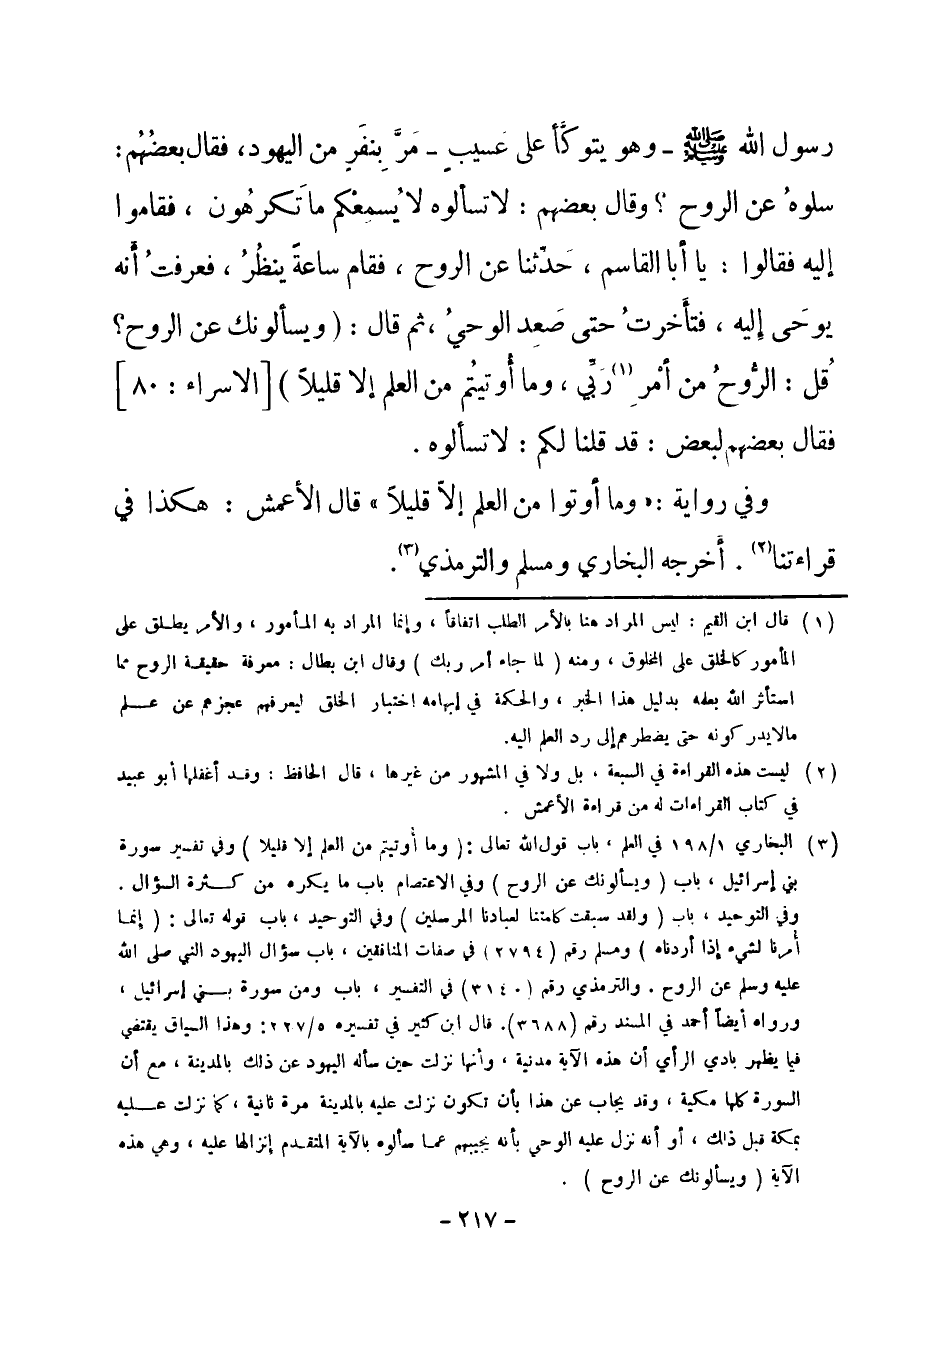 رسول الله ﷺ - وهو يتوكَّأ على عَسيبٍ - مَرَّ بِنفَرٍ من اليهود، فقال بعضُهُم:
سلوهُ عن الروح ؟ وقال بعضهم : لا تسألوه لا يُسمِعْكم ما تَكرهُون ، فقاموا
إليه فقالوا : يا أبا القاسم ، حَدِّثنا عن الروح ، فقام ساعةً ينظُرُ ، فعرفتُ أَنه
يوحَى إِليه ، فتأَخرتُ حتى صَعِد الوحيُ ، ثم قال : ( ويسألونك عن الروح ؟
قُل : الرُّوحُ من أَمْرِ(١) رَبِّي ، وما أُوتيتُم من العلم إلا قليلاً ) [الاسراء : ٨٠]
فقال بعضهم لبعض : قد قلنا لكم : لا تسألوه .
وفي رواية : « وما أوتوا من العلم إلاَّ قليلاً » قال الأعمش : هكذا في
قراءتنا(٢) . أَخرجه البخاري ومسلم والترمذي(٣).
(١) قال ابن القيم : ليس المراد هنا بالأمر الطلب اتفاقاً ، وإنما المراد به المأمور ، والأمر يطلق على
المأمور كالخلق على المخلوق ، ومنه ( لما جاء أمر ربك ) وقال ابن بطال : معرفة حقيقة الروح مما
استأثر الله بعلمه بدليل هذا الخبر ، والحكمة في إبهامه اختبار الخلق ليعرفهم عجزهم عن علم
مالايدركونه حتى يضطرهم إلى رد العلم اليه.
(٢) ليست هذه القراءة في السبعة ، بل ولا في المشهور من غيرها ، قال الحافظ : وقد أغفلها أبو عبيد
في كتاب القراءات له من قراءة الأعمش .
(٣) البخاري ١٩٨/١ في العلم ، باب قول الله تعالى : ( وما أُوتيتم من العلم إلا قليلا ) وفي تفسير سورة
بني إسرائيل ، باب ( ويسألونك عن الروح ) وفي الاعتصام باب ما يكره من كثرة السؤال .
وفي التوحيد ، باب ( ولقد سبقت كلمتنا لعبادنا المرسلين ) وفي التوحيد ، باب قوله تعالى : ( إنما
أمرنا لشيء إذا أردناه ) ومسلم رقم (٢٧٩٤) في صفات المنافقين ، باب سؤال اليهود النبي صلى الله
عليه وسلم عن الروح . والترمذي رقم (٣١٤٠) في التفسير ، باب ومن سورة بني إسرائيل ،
ورواه أيضاً أحمد في المسند رقم (٣٦٨٨). قال ابن كثير في تفسيره ٢٢٧/٥ : وهذا السياق يقتضي
فيما يظهر بادي الرأي أن هذه الآية مدنية ، وأنها نزلت حين سأله اليهود عن ذلك بالمدينة ، مع أن
السورة كلها مكية ، وقد يجاب عن هذا بأن تكون نزلت عليه بالمدينة مرة ثانية ، كما نزلت عليه
بمكة قبل ذلك ، أو أنه نزل عليه الوحي بأنه يجيبهم عما سألوه بالآية المتقدم إنزالها عليه ، وهي هذه
الآية ( ويسألونك عن الروح ) .
- ٢١٧ -